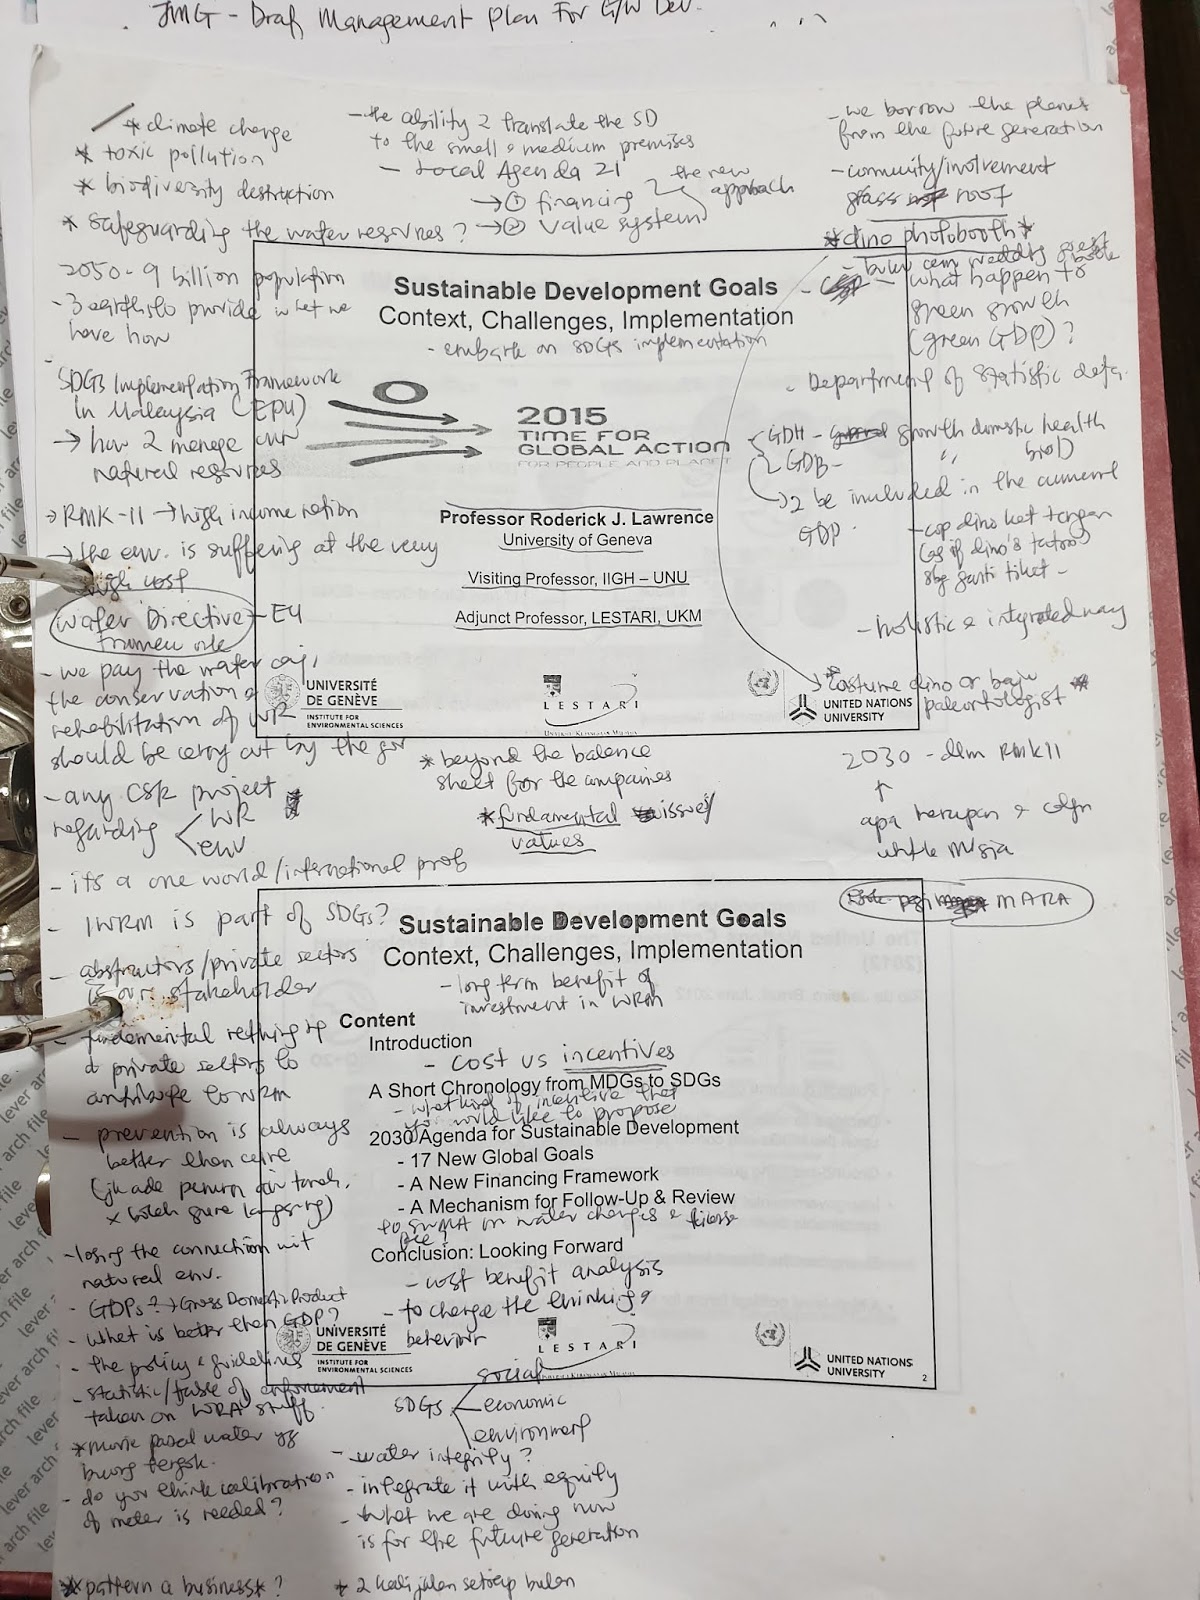 JMG - Draf Management Plan For G/W Dev.
* climate change
* toxic pollution
* biodiversity destruction
* safeguarding the water resources?
2050 - 9 billion population
- 3 earths to provide what we
have now
SDGs Implementation Framework
in Malaysia (EPU)
→ how 2 manage our
natural resources
→ RMK-11 → high income nation
→ the env. is suffering at the very
high cost
Water Directive - EU
Framework
- we pay the water
the conservation &
rehabilitation of WR
should be carry out by the gov
- any CSR project
regarding
WR
env
- its a one world/international prob
- IWRM is part of SDGs?
- abstractors/private sectors
is our stakeholder
- fundamental rethinking
private sectors to
to WRM
- prevention is always
better than cure
(jk ade penurunan air tanah,
x boleh
- losing the connection wit
natural env.
- GDPs? → Gross Domestic Product
- what is better than GDP?
- the policy & guidelines
- statistic/ of enforcement
taken on WRA stuff.
*
water yg
- do you think calibration
of meter is needed?
* pattern a business* ?
- the ability 2 translate the SD
to the small & medium premises
- Local Agenda 21
→ ① financing
→ ② value system
the new
approach
- we borrow the planet
from the future generation
- community/involvement
grass root
*dino photobooth*
- what happen to
green growth
(green GDP)?
- Department of Statistic data
GDH - growth domestic health
GDB -
" biod)
→ 2 be included in the current
GDP
- cop dino kat tangan
(as if dino's tatoo)
sbg ganti tiket -
- holistic & integrated way
*costume dino or baju
paleontologist *
2030 - dlm RMK11
↑
apa harapan &
untuk M'sia
MARA
Sustainable Development Goals
Context, Challenges, Implementation
- embark on SDGs implementation
2015
TIME FOR
GLOBAL ACTION
FOR PEOPLE AND PLANET
Professor Roderick J. Lawrence
University of Geneva
Visiting Professor, IIGH – UNU
Adjunct Professor, LESTARI, UKM
UNIVERSITÉ
DE GENÈVE
INSTITUTE FOR
ENVIRONMENTAL SCIENCES
LESTARI
UNITED NATIONS
UNIVERSITY
* beyond the balance
sheet for the companies
*fundamental issue/
values
Sustainable Development Goals
Context, Challenges, Implementation
- long term benefit of
investment in WRM
Content
Introduction
- cost vs incentives
A Short Chronology from MDGs to SDGs
- what kind of incentive that
you would like to propose
2030 Agenda for Sustainable Development
- 17 New Global Goals
- A New Financing Framework
- A Mechanism for Follow-Up & Review
to on water charges & license
fee?
Conclusion: Looking Forward
- cost benefit analysis
- to change the thinking &
behavior
UNIVERSITÉ
DE GENÈVE
INSTITUTE FOR
ENVIRONMENTAL SCIENCES
LESTARI
UNITED NATIONS
UNIVERSITY
2
SDGs
social
economic
environment
- water integrity?
- integrate it with equity
- what we are doing now
is for the future generation
* 2 kali jalan setiap bulan
lever arch file